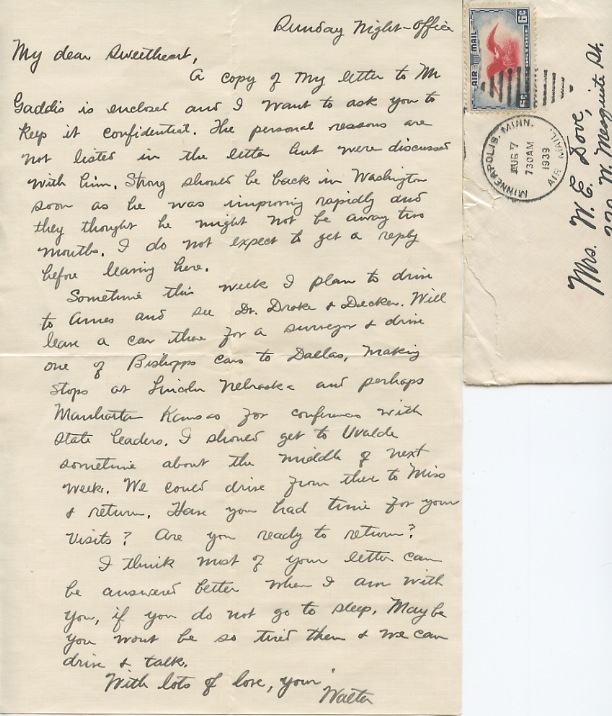 Sunday Night-Office
My dear Sweetheart,
A copy of my letter to Mr
Gaddis is enclosed and I want to ask you to
keep it confidential. The personal reasons are
not listed in the letter but were discussed
with him. Strong should be back in Washington
soon as he was improving rapidly and
they thought he might not be away two
months. I do not expect to get a reply
before leaving here.
Sometime this week I plan to drive
to Ames and see Dr. Drake & Decker. Will
leave a car there for a surveyor & drive
one of Bishopps cars to Dallas, making
stops at Lincoln Nebraska and perhaps
Manhattan Kansas for conferences with
state leaders. I should get to Uvalde
sometime about the middle of next
week. We could drive from there to Miss
& return. Have you had time for your
visits? Are you ready to return?
I think most of your letter can
be answered better when I am with
you, if you do not go to sleep. Maybe
you wont be so tired then & we can
drive & talk.
With lots of love, your
Walter
AIR MAIL
6¢
6¢
MINNEAPOLIS, MINN.
AUG 7
730AM
1939
AIR MAIL
Mrs. W. E. Dove,
W. Mesquite St.